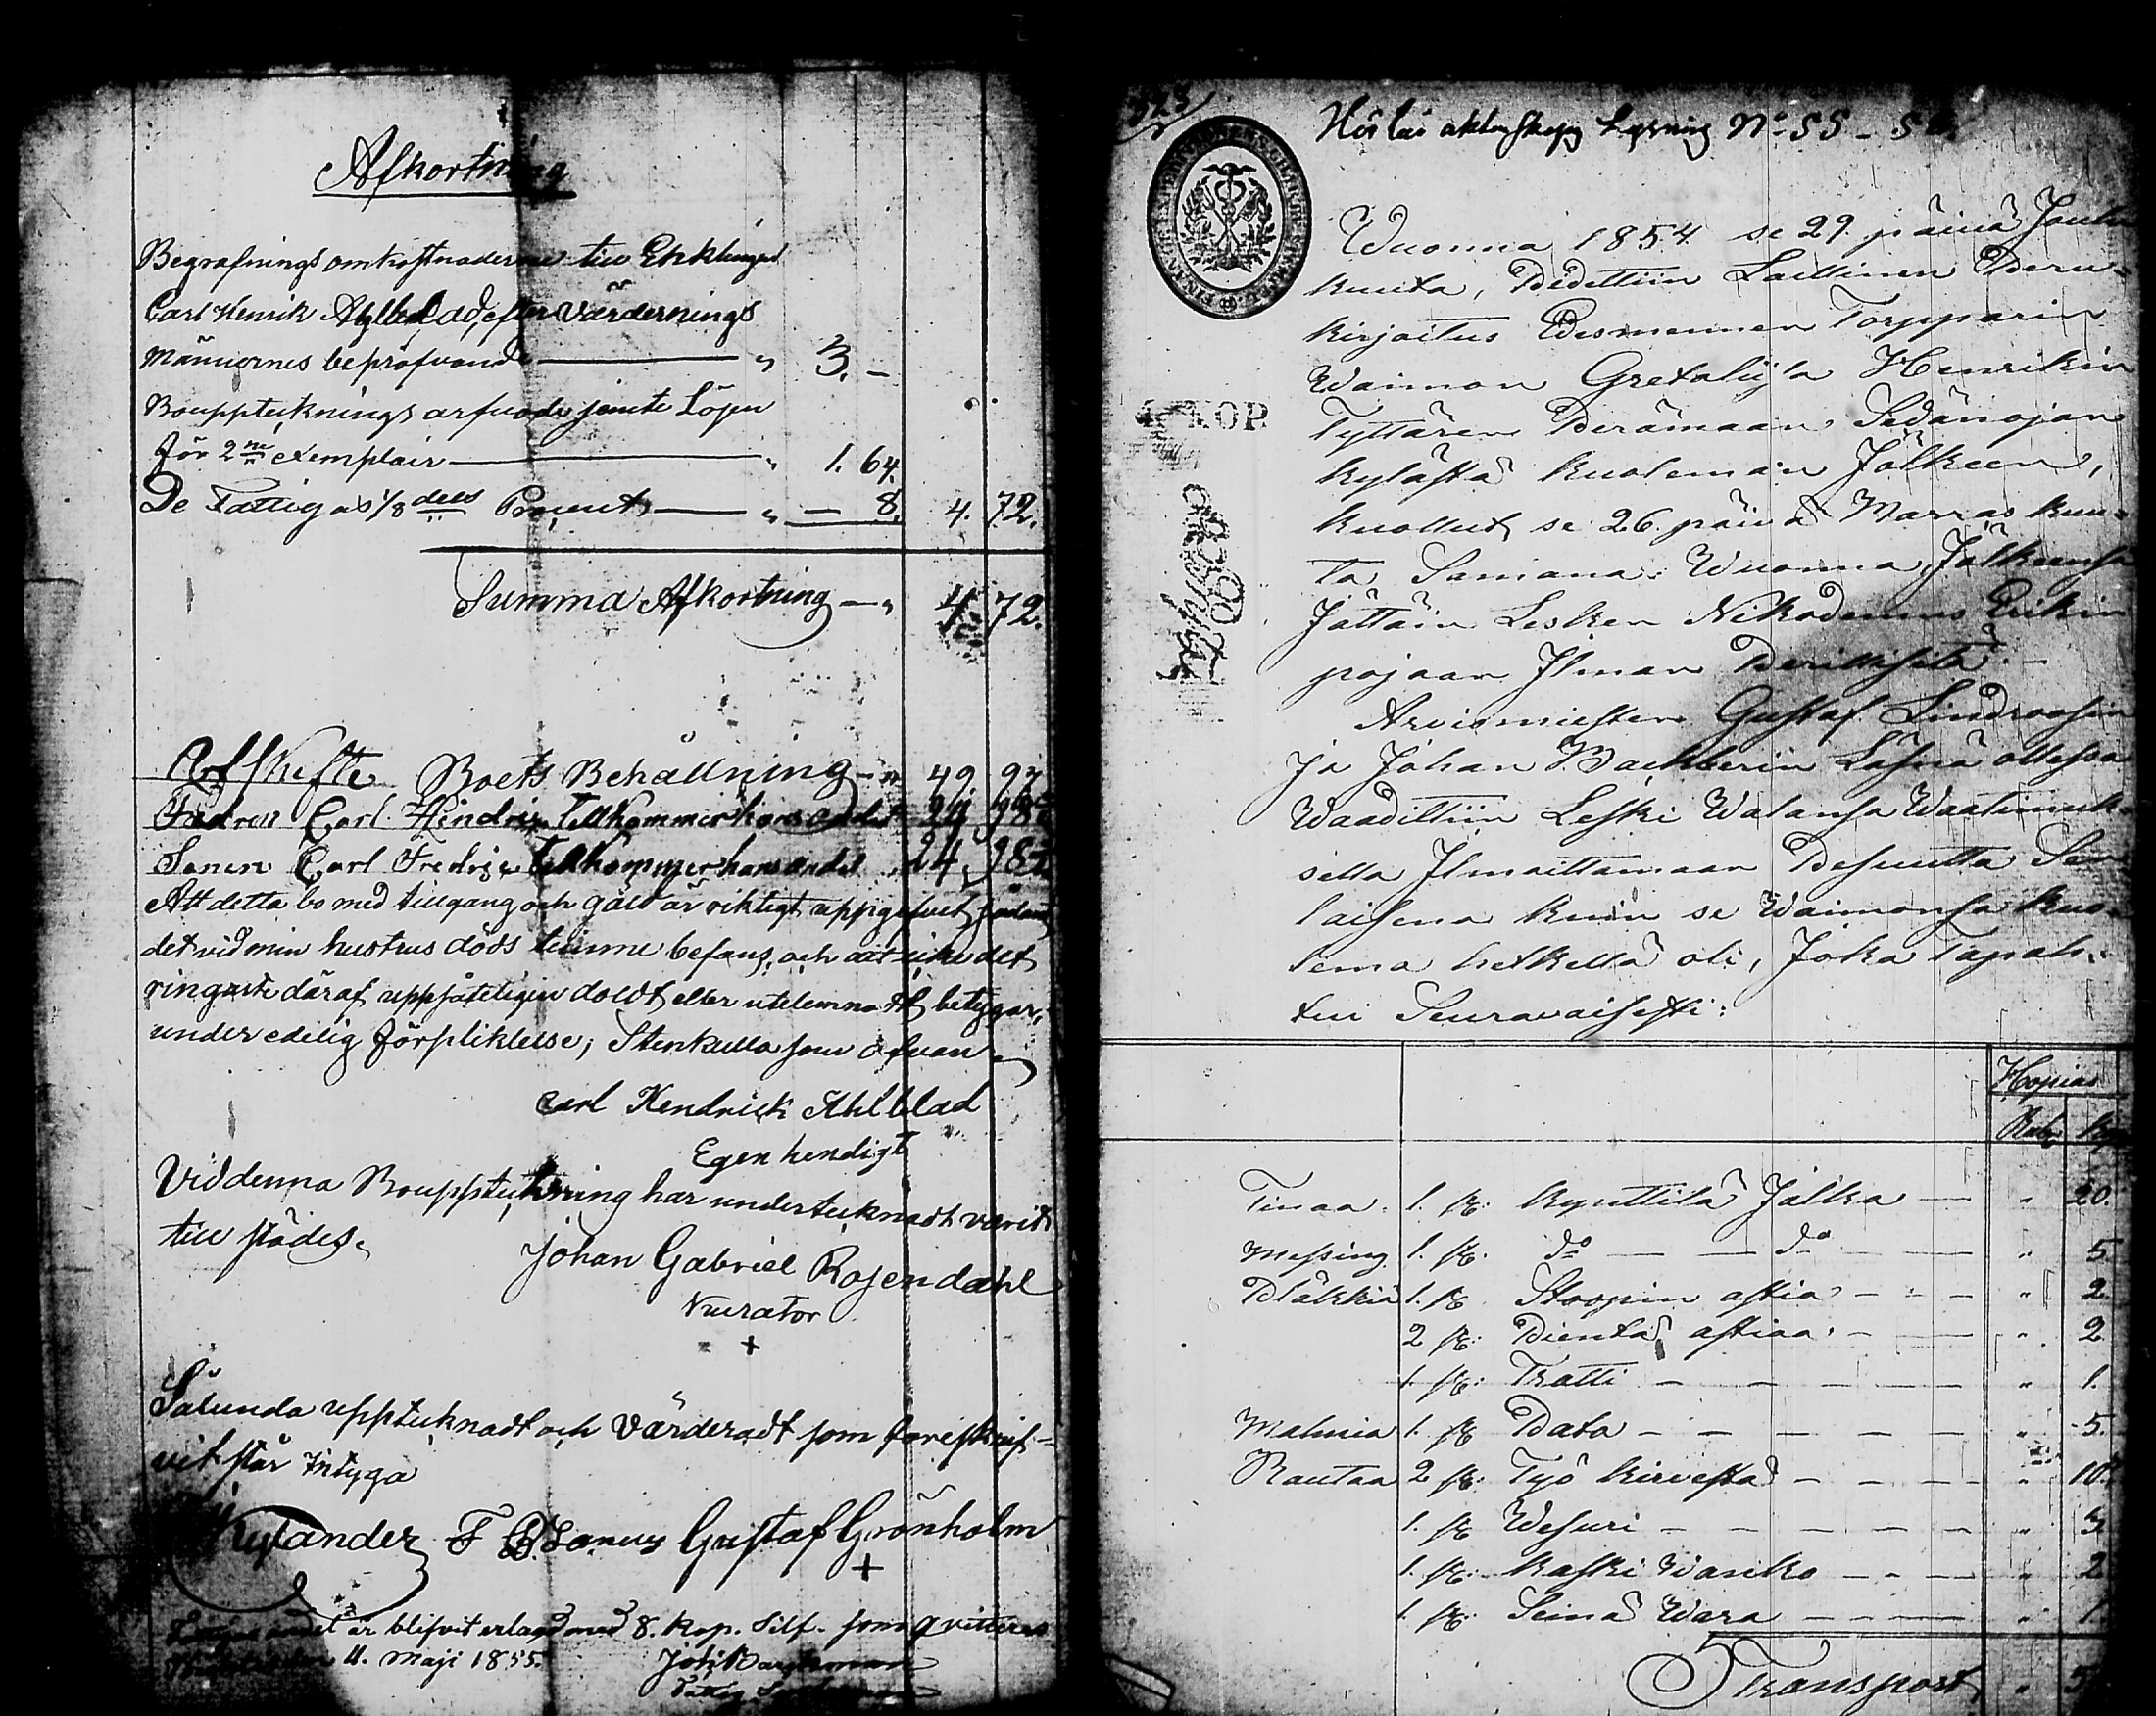 Afkortning
Begrafnings omkostnaderne till Enklingen
Carl Henrik Ahlblad, efter Värdernings
Männernes bepröfvande — " 3. –
Bouppteknings arfvode jemte Lösen
för 2ne exemplair — " 1. 64.
De Fattigas 1/8 dels Procent — " — 8. 4. 72.
Summa Afkortning — " 4. 72.
Arfskifte Boets Behållning — " 49 97
Fadren Carl Hindric Tillkommer hans andel 24 98½
Sonen Carl Fredric Tillkommer hans andel 24, 98½
Att detta bo med tillgång och gäld är riktigt uppgifvet sådant
det vid min hustrus döds timme befans, och att icke det
ringaste däraf uppsåteligen doldt eller utelemnadt betygar,
under edelig förpliktelse; Stenkulla som ofvan
Carl Hendrick Ahlblad
Egenhendigt
Vid denna Bouppteckning har undertecknadt varit
till städes.
Johan Gabriel Rosendahl
Kurator
+
Sålunda upptecknadt och Värderadt som föreskrif-
vit står Intyga
Nylander F Gustaf Grönholm
+
andel är blifvit erlagd med 8. Kop. Silf. som qvitteras
11. Maji 1855.
323
Lysning No 55 - 56.
4 KOP.
Wuonna 1854 se 29 päivä Joulu
kuuta, Pidettiin Laillinen Peru-
kirjoitus Edesmennen Torpparin
Waimon Gretaliisa Henrikin
Tyttären Perämaan Sedänojan
kylästä kuoleman Jälkeen,
kuollut se 26. päivä Marras kuu-
ta Samana Wuonna, Jälkeensä
Jättäin Lesken Nikodemus Erikin
pojaan Ilman Perillisitä. –
Arviomiesten Gustaf Lindroosin
Ja Johan Backberin Läsnä ollessa
Waadittiin Leski Walansa Waatimuk-
sella Ilmoittamaan Pesuutta Sen
laisena kuin se Waimonsa kuo-
lema hetkellä oli, Joka Tapah-
tui Seuraavaisesti:
Hopias
Rub. Kop
Tinaa. 1. st: kynttilä Jalka — " 20.
Messing 1. st. do — — do — " 5
Pläkkiä 1. st Stoopin astia — " 2
2 st: Pientä astiaa — " 2
1. st: Tratti — " 1.
Malmia 1. st Pata — " 5.
Rautaa 2 st: Työ kirvestä — " 10.
1. st Wesuri — " 3
1. st: kaski Wariko — " 2
1. st: Seinä Wara — " 1
Transport " 5